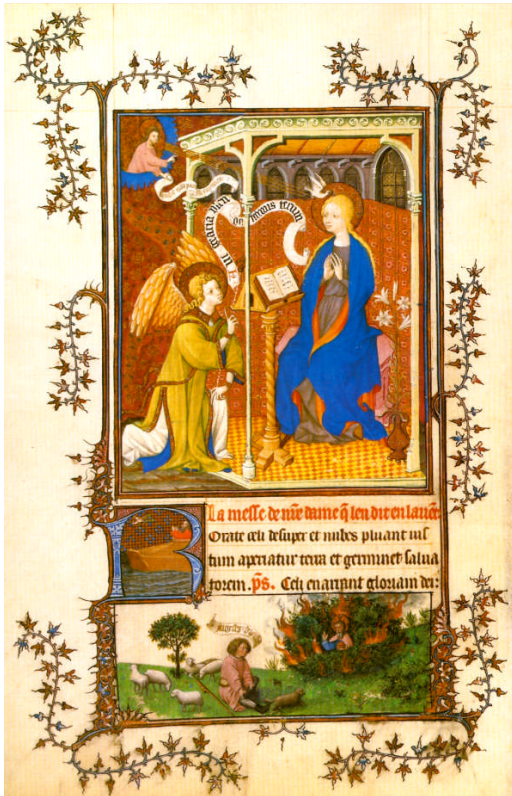 gracia plen
dominus tecum
La messe de nr̄e dame q̄ len dit en lauēt
Rorate celi desuper et nubes pluant ius
tum aperiatur terra et germinet salua
torem. p̄s. Celi enarrant gloriam dei: